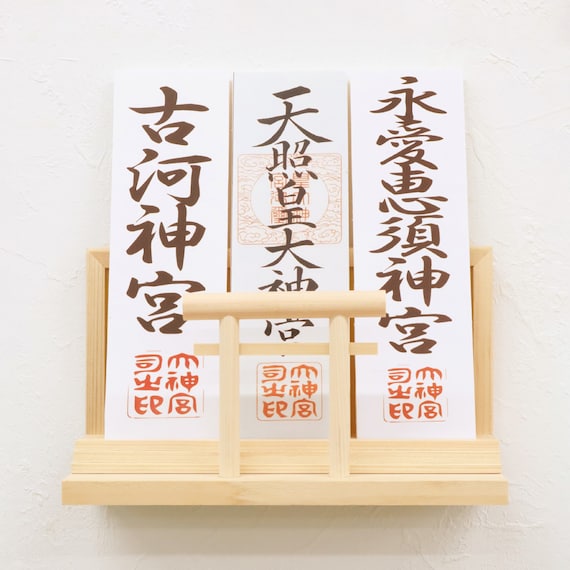 永愛恵須神宮
天照皇大神宮
古河神宮
大神宮
司之印
大神宮
司之印
大神宮
司之印